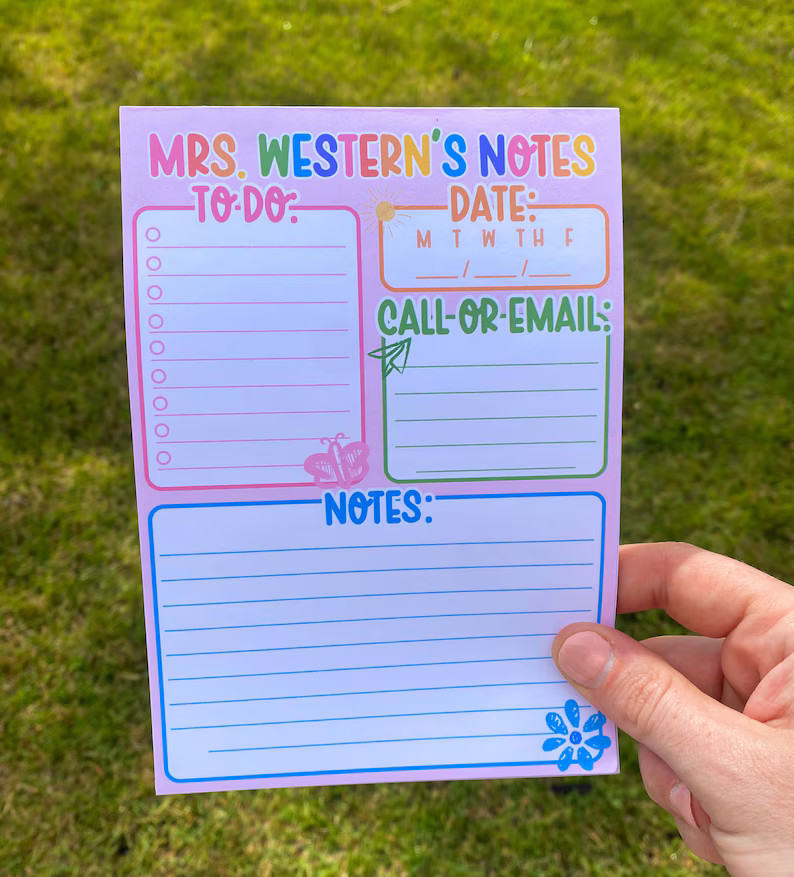 MRS. WESTERN'S NOTES
TO-DO:
DATE:
M T W TH F
___/___/___
CALL-OR-EMAIL:
NOTES: